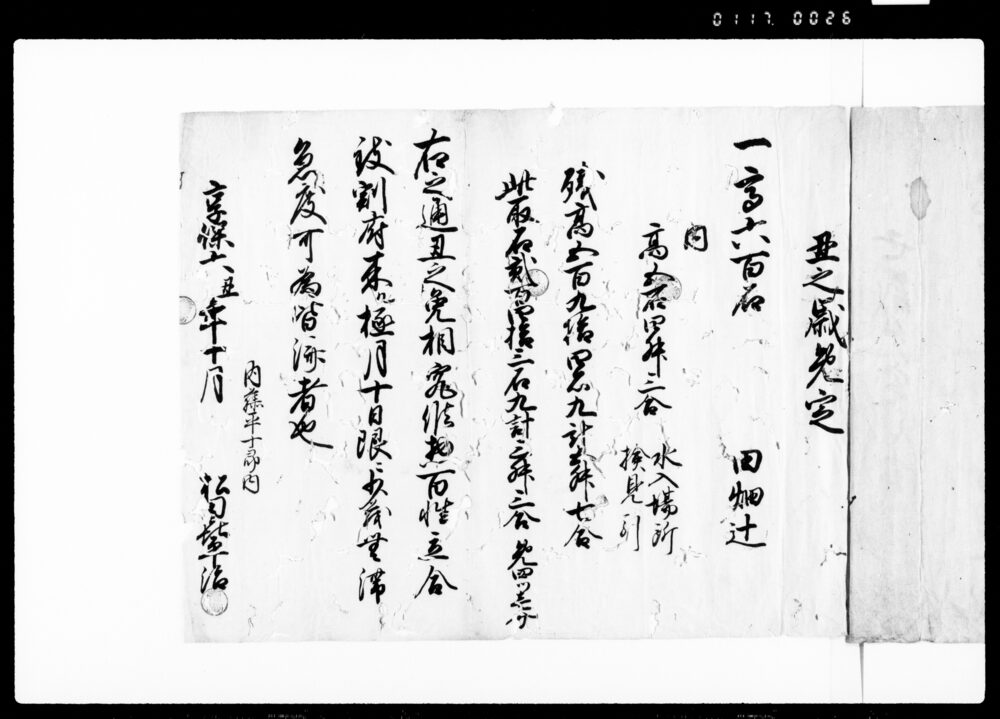 0117. 0026
丑之歳免定
一高六百石 田畑辻
内
高五石四升三合 水入場所
検見引
残高五百九拾四石九斗五升七合
此取石弐百四拾三石九斗三升三合 免四ツ壱分
右之通丑之免相究候惣百姓立合
致割府来ル極月十日限ニ少茂無滞
急度可為皆済者也
享保六丑年十月
内藤平十郎内